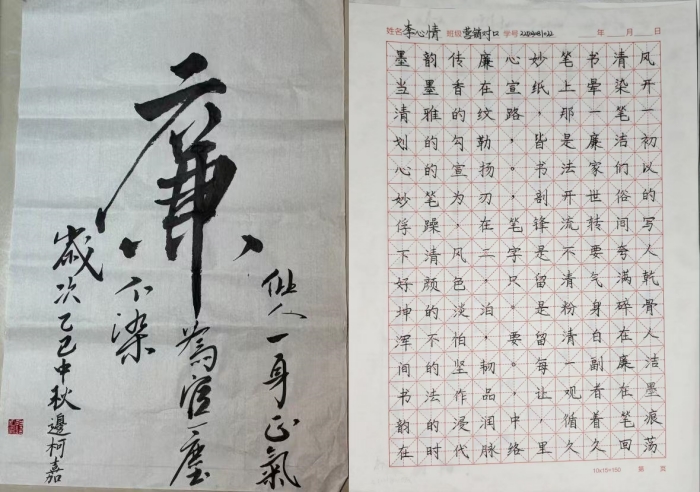 廉
做人一身正氣
為官一塵
不染
歲次乙巳中秋邊柯嘉
姓名 李心情 班级 营销对口 学号 年 月 日
墨韵传廉心妙笔书清风
当墨香在宣纸上晕染开
清雅的纹路，那一笔一
划的勾勒。皆是廉洁初
心的宣扬。书法家们以
妙笔为刃，剖开世俗的
俘躁，在笔锋流转间写
下清风二字是不要夸人
好颜色，只留清气满乾
坤的淡泊。是粉身碎骨
浑不怕，要留清白在人
间的坚韧。每一副廉洁
书法作品，让观者在墨
韵的浸润中，循着笔痕
在时代脉络里久久回荡
10×15=150 第 页